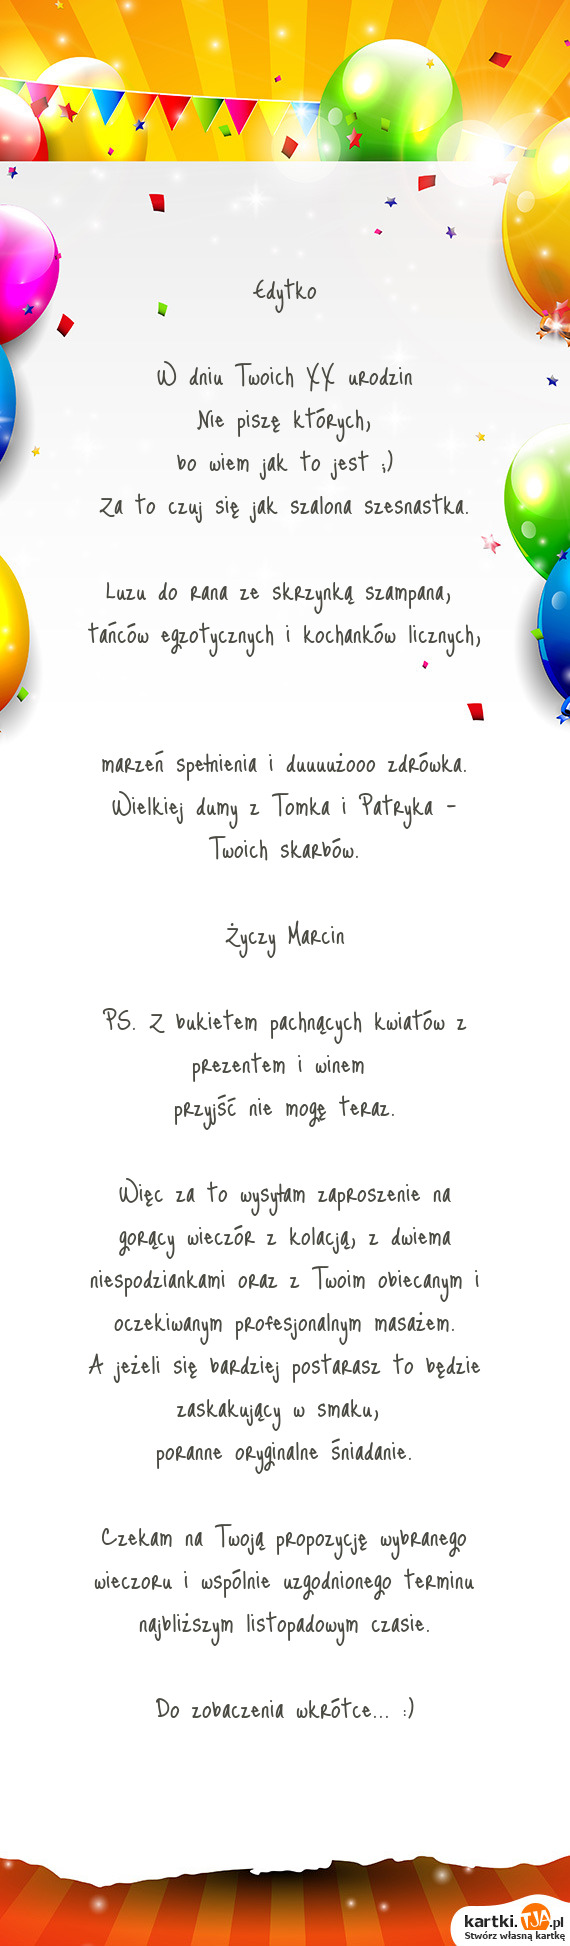 Edytko
W dniu Twoich XX urodzin
Nie piszę których,
bo wiem jak to jest ;)
Za to czuj się jak szalona szesnastka.
Luzu do rana ze skrzynką szampana,
tańców egzotycznych i kochanków licznych,
marzeń spełnienia i duuuużooo zdrówka.
Wielkiej dumy z Tomka i Patryka -
Twoich skarbów.
Życzy Marcin
PS. Z bukietem pachnących kwiatów z
prezentem i winem
przyjść nie mogę teraz.
Więc za to wysyłam zaproszenie na
gorący wieczór z kolacją, z dwiema
niespodziankami oraz z Twoim obiecanym i
oczekiwanym profesjonalnym masażem.
A jeżeli się bardziej postarasz to będzie
zaskakujący w smaku,
poranne oryginalne śniadanie.
Czekam na Twoją propozycję wybranego
wieczoru i wspólnie uzgodnionego terminu
najbliższym listopadowym czasie.
Do zobaczenia wkrótce... :)
kartki.TJA.pl
Stwórz własną kartkę